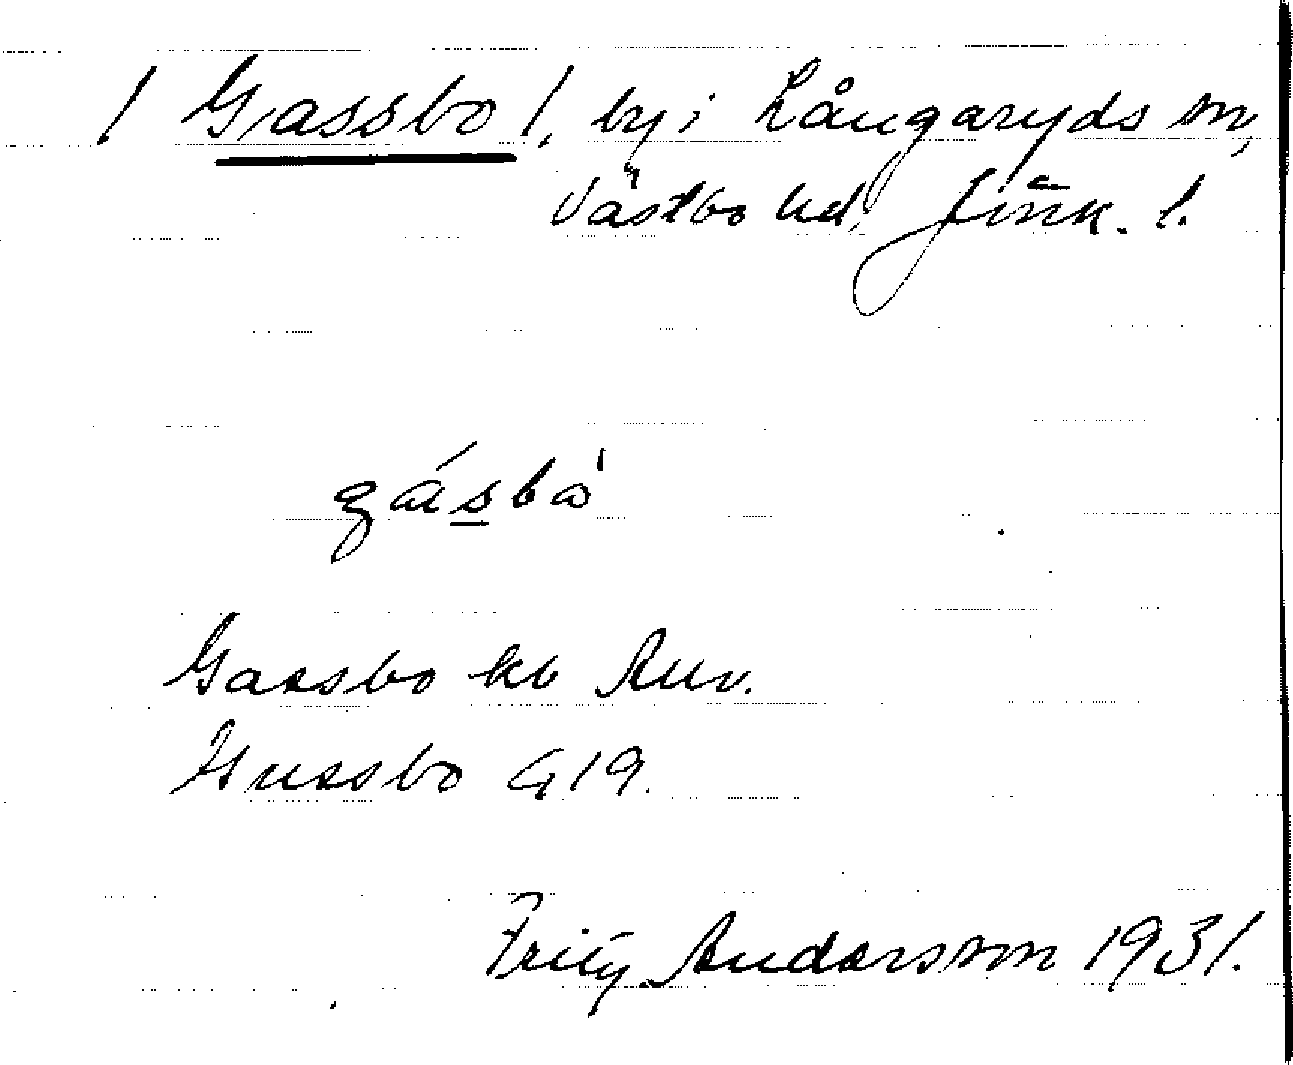 / Gassbo /, by i Långaryds sn,
Västbo hd, Jönk. l.
gásbo̍
Gassbo kb Auv.
Gussbo G 19.
Fritz Andersson 1931.